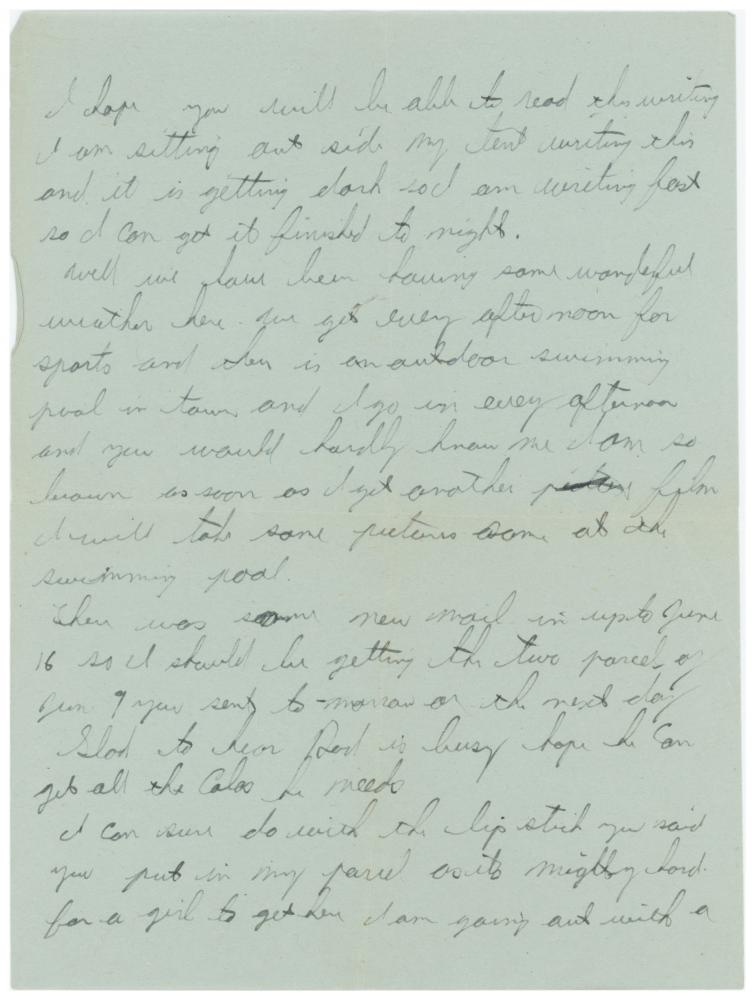 I hope you will be able to read this writing
I am sitting out side my tent writing this
and it is getting dark so I am writing fast
so I can get it finished to night.
Well we have been having some wonderful
weather here. We get every afternoon for
sports and ther is an outdoor swimming
pool in town and I go in every afternoon
and you would hardly know me I am so
brown as soon as I get another film
I will take some pictures some at the
swimming pool.
Ther was some new mail in upto June
16 so I should be getting the two parcel of
Jun 9 you sent to-morrow or the next day
Glad to hear Dad is busy hope he can
get all the Coles he needs
I can sure do with the lip stick you said
you put in my parcel as its mighty hard.
for a girl to get here I am going out with a